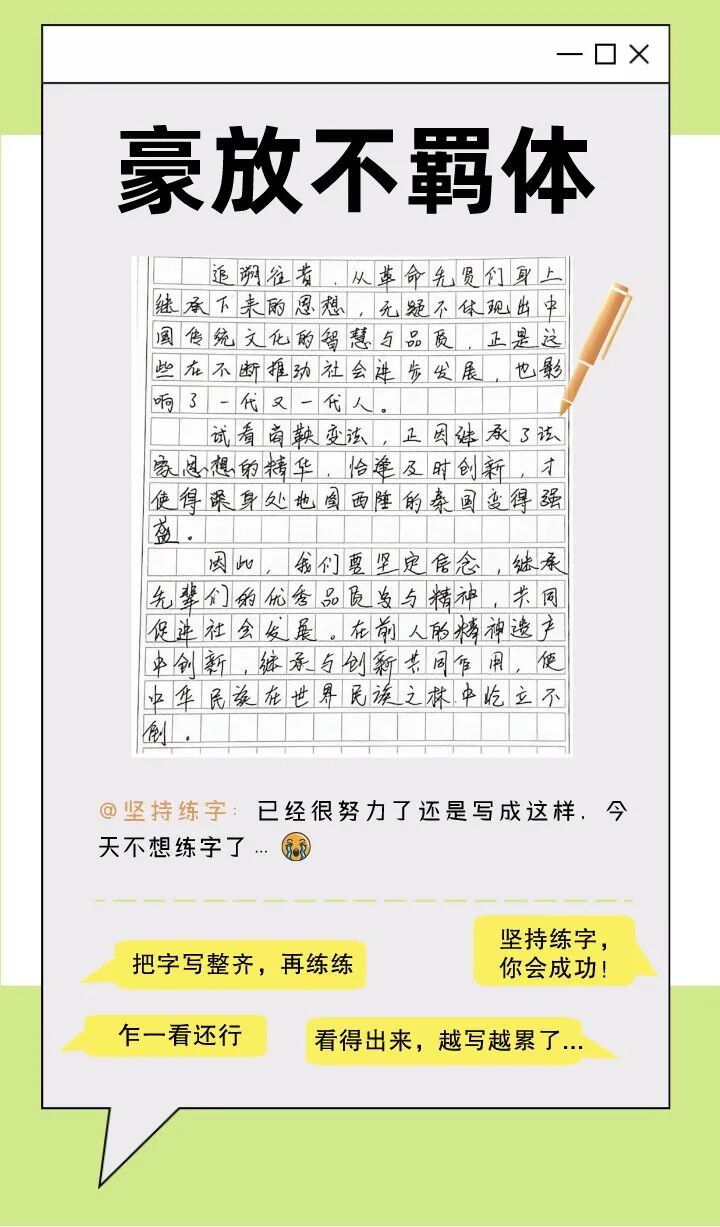 豪放不羁体
追溯往昔，从革命先贤们身上
继承下来的思想，无疑不体现出中
国传统文化的智慧与品质，正是这
些在不断推动社会进步发展，也影
响了一代又一代人。
试看商鞅变法，正因继承了法
家思想的精华，恰逢及时创新，才
使得深身处地图西陲的秦国变得强
盛。
因此，我们要坚定信念，继承
先辈们的优秀品质与精神，共同
促进社会发展。在前人的精神遗产
中创新，继承与创新共同作用，使
中华民族在世界民族之林中屹立不
倒。
@坚持练字：已经很努力了还是写成这样，今
天不想练字了…😭
把字写整齐，再练练
坚持练字，
你会成功！
乍一看还行
看得出来，越写越累了...